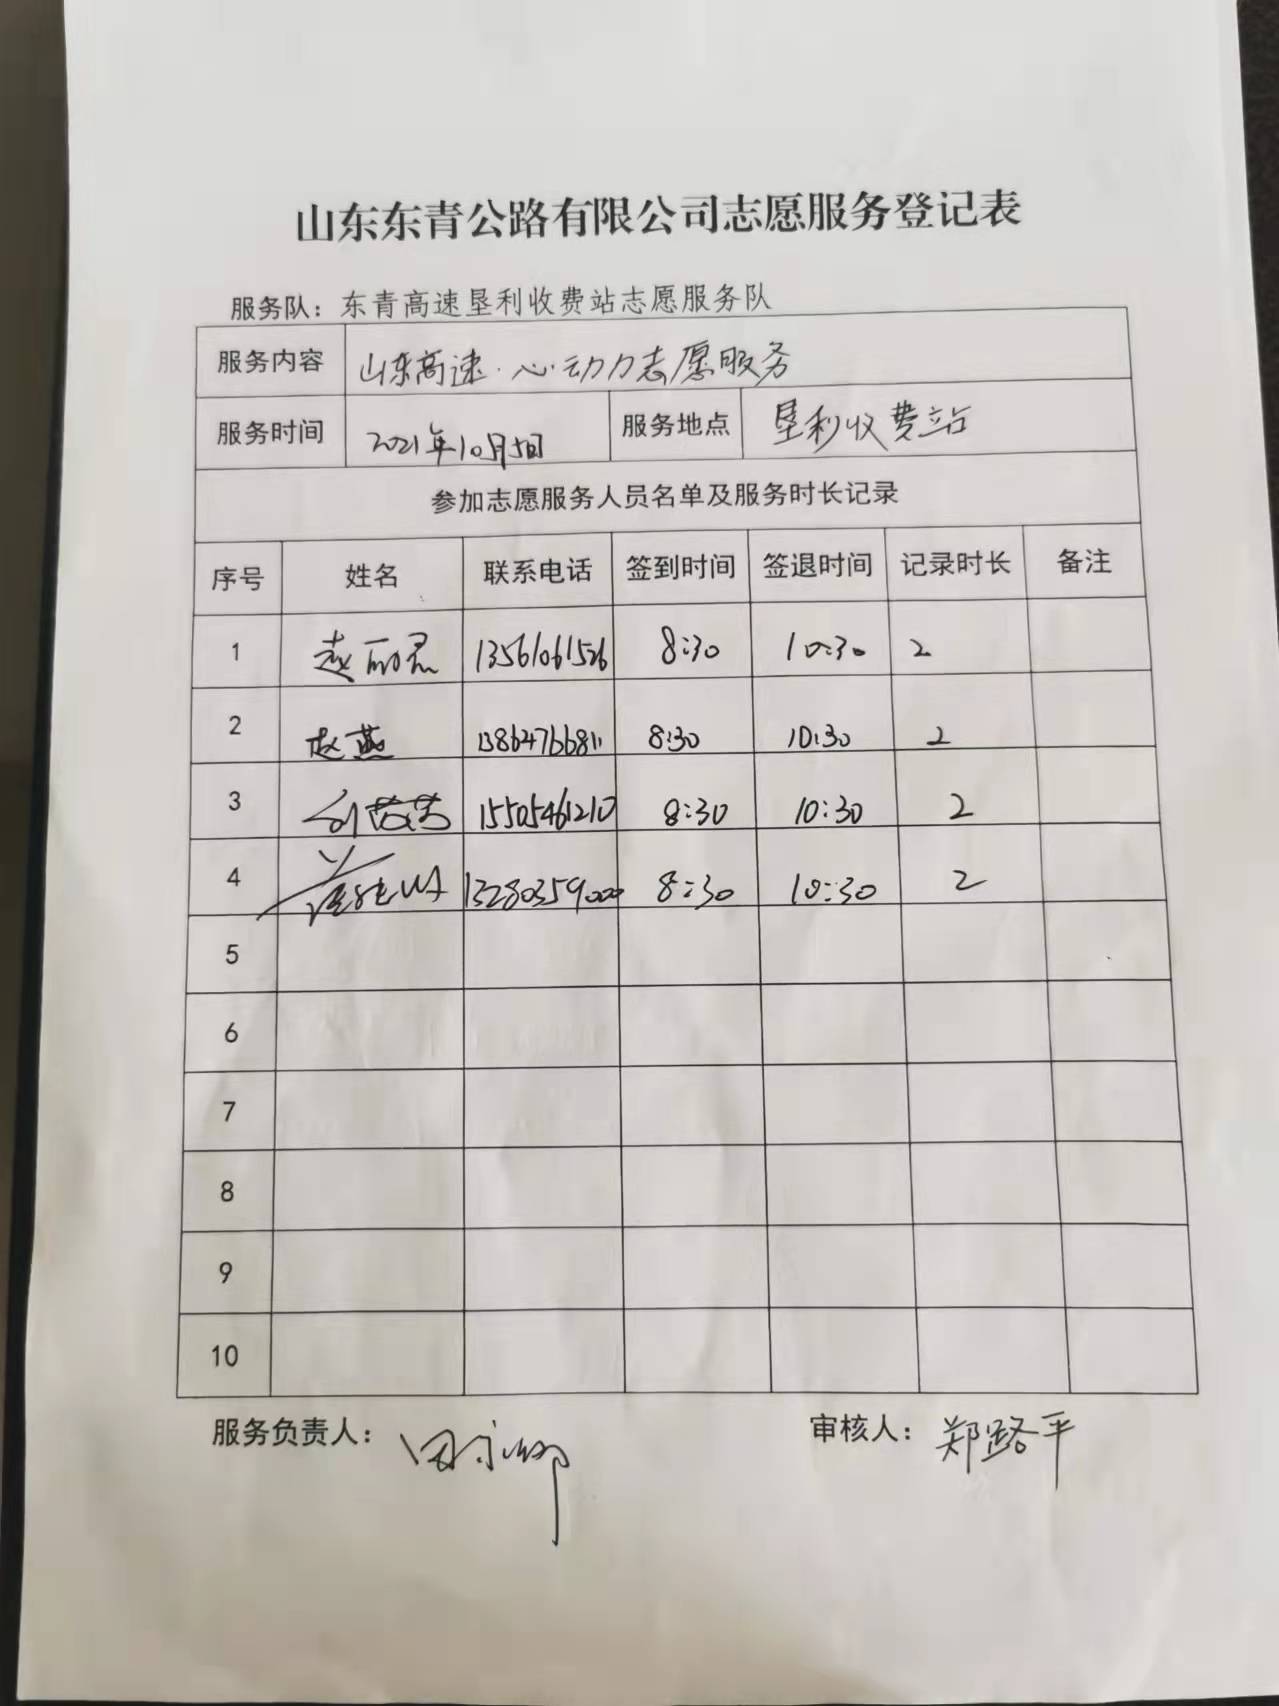 山东东青公路有限公司志愿服务登记表
服务队：东青高速垦利收费站志愿服务队
服务内容 山东高速·心·动力志愿服务
服务时间 2021年10月5日 服务地点 垦利收费站
参加志愿服务人员名单及服务时长记录
序号 姓名 联系电话 签到时间 签退时间 记录时长 备注
1 赵丽君 13561061526 8:30 10:30 2
2 赵燕 13864766811 8:30 10:30 2
3 15505461210 8:30 10:30 2
4 13280359000 8:30 10:30 2
5
6
7
8
9
10
服务负责人： 审核人：郑路平